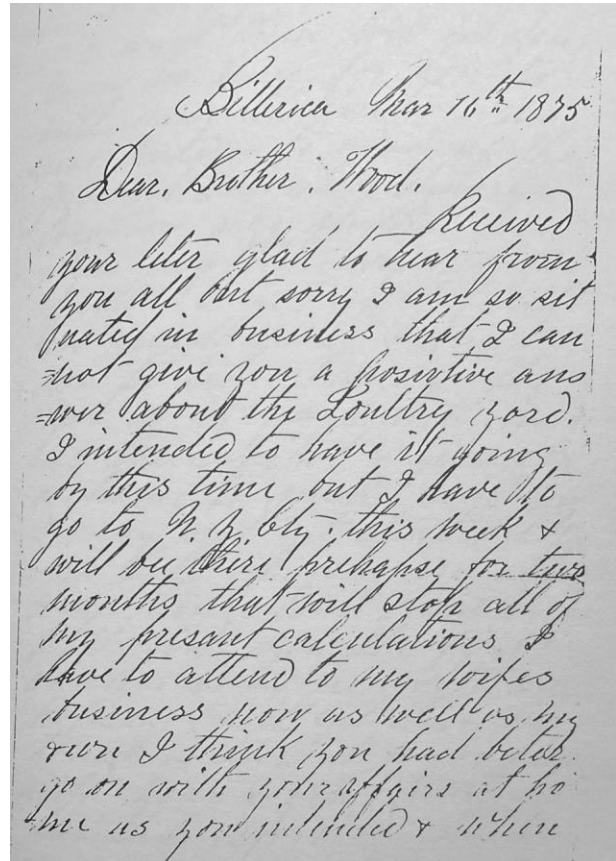 Billerica Mar 16th 1875
Dear. Brother. Wood.
Received
your leter glad to hear from
you all but sorry I am so sit
uated in business that I can
=not give you a posirtive ans
=wer about the Poultry yard.
I intended to have it going
by this time but I have to
go to N. Y. City. this week &
will be there prehapse for two
months that will stop all of
my presant calculations I
have to attend to my wifes
business now as well as my
own I think you had beter
go on with your affairs at ho
=me as you intended & when